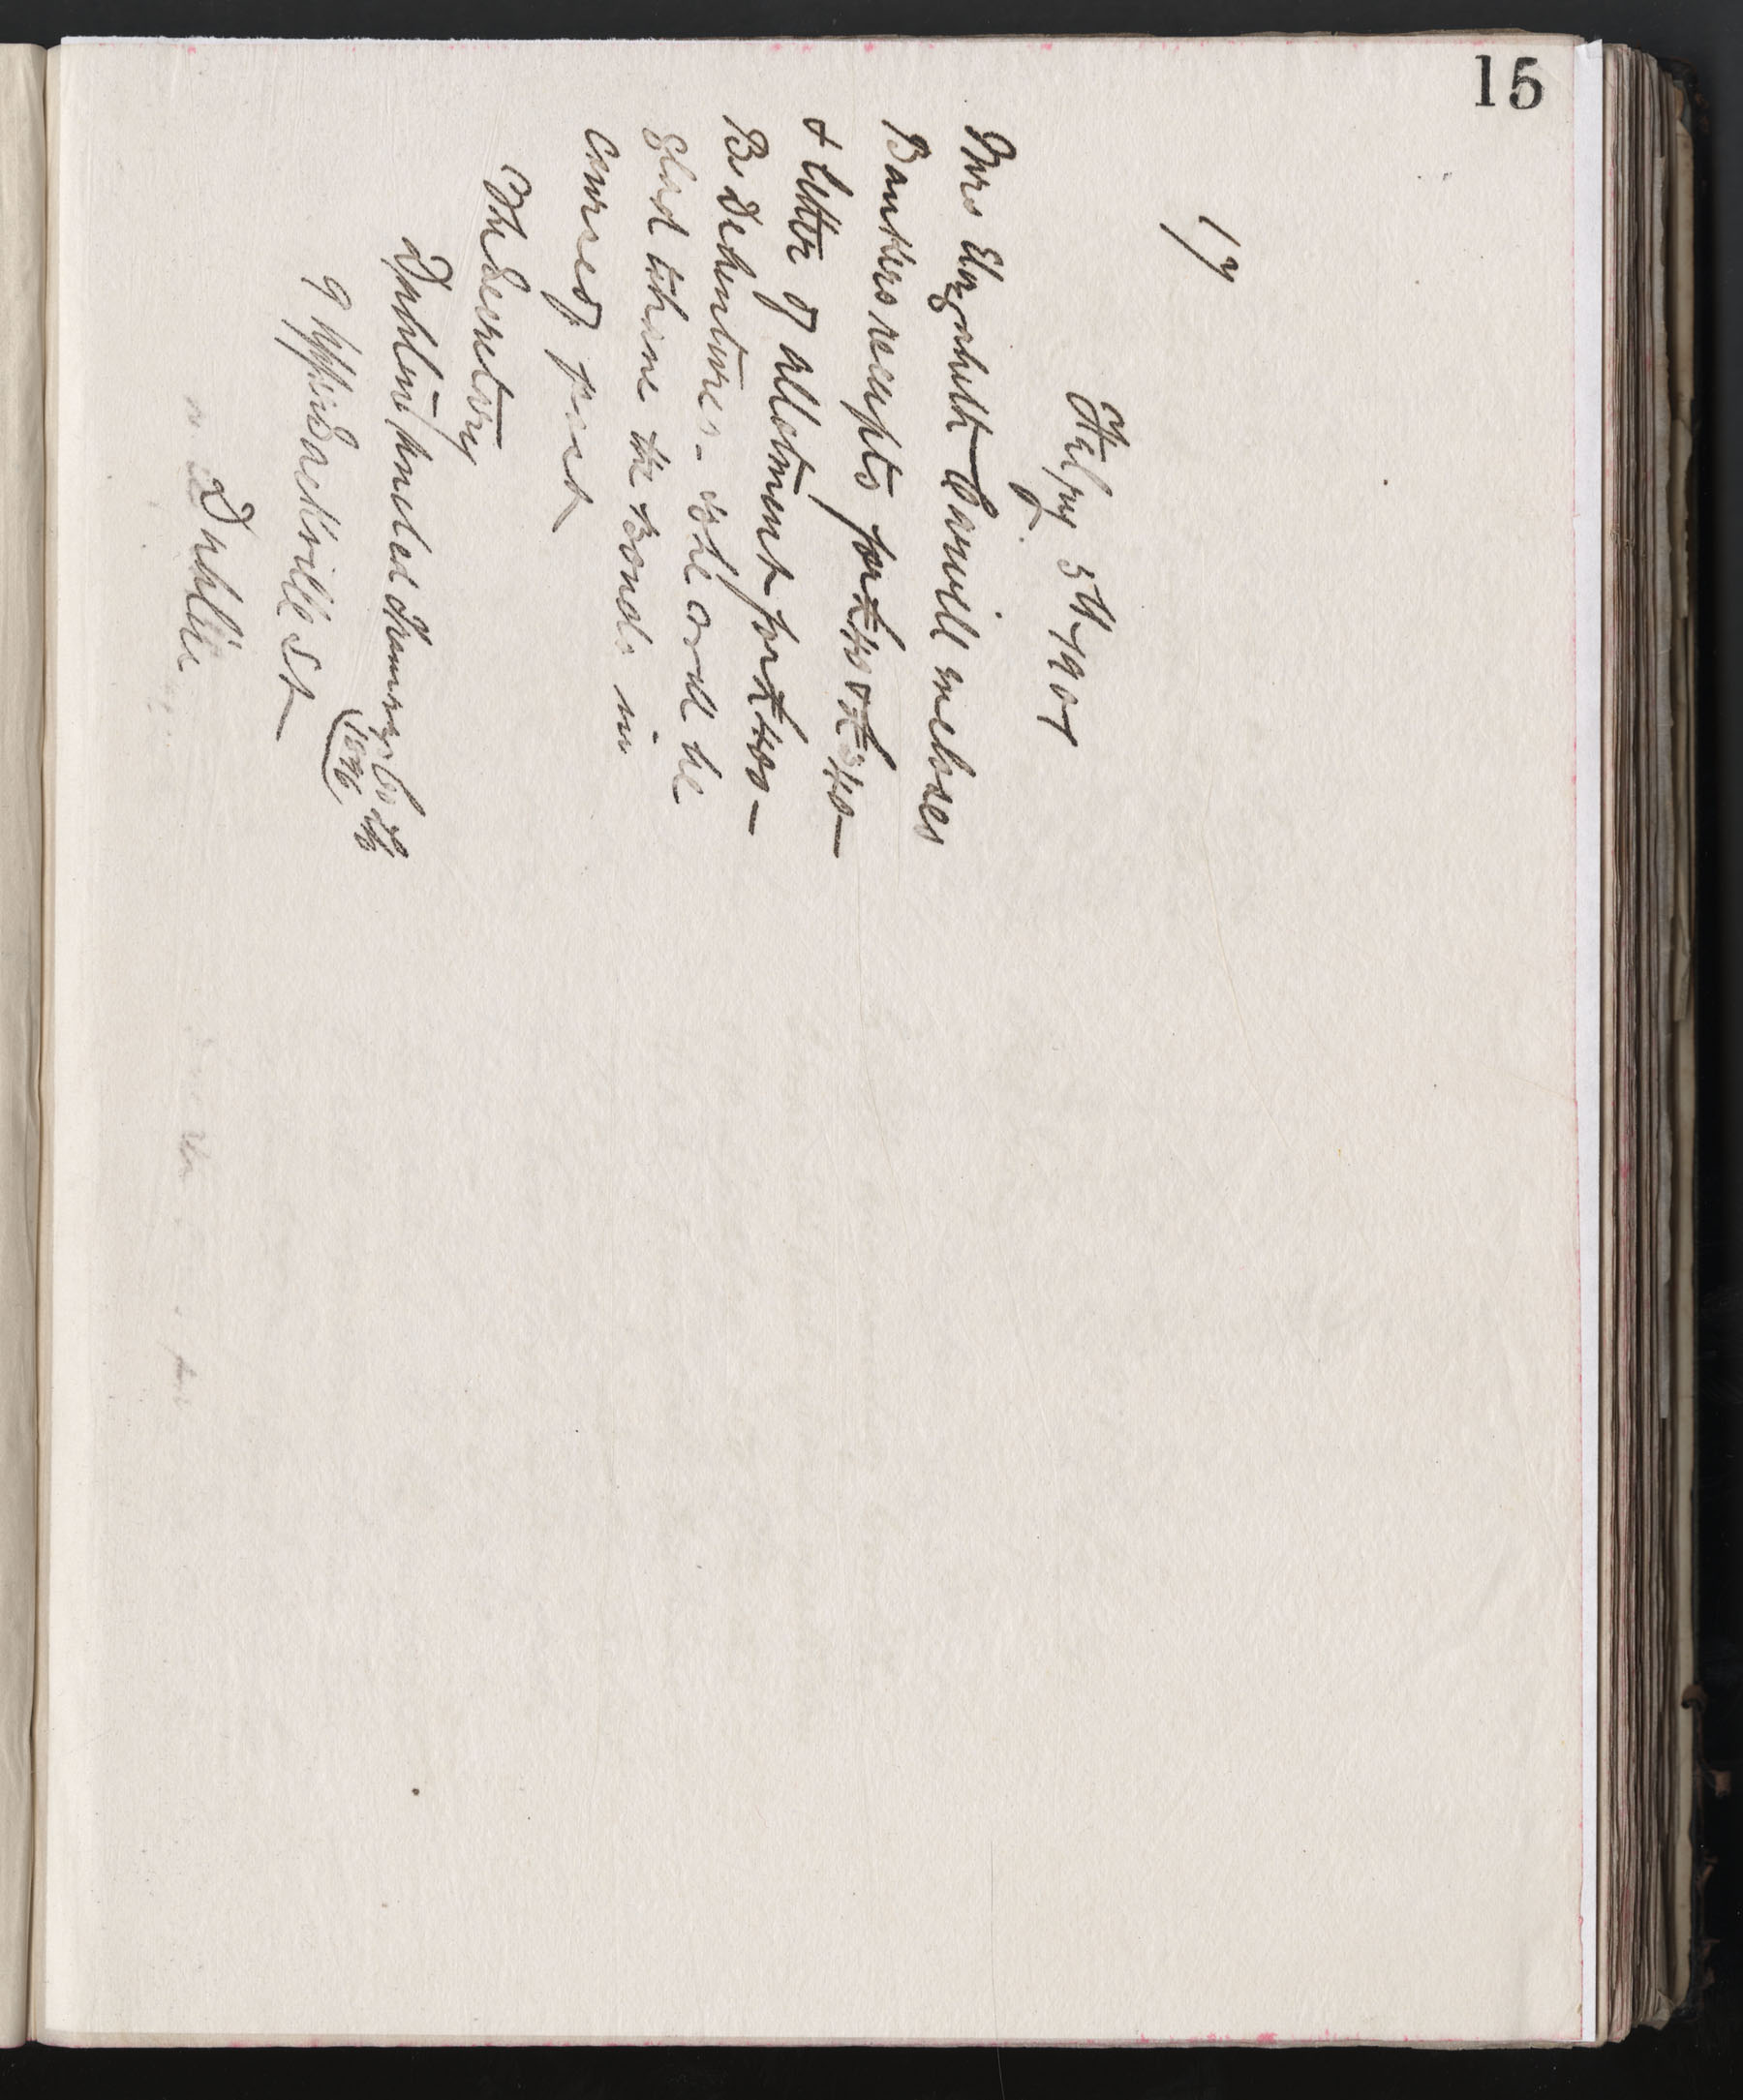 15
17
Italy 5th 1901
Mrs Elizabeth Carvill encloses
Bankers receipts for £40 & £340 —
& letter of allotment for £400 —
B. Debentures — She would be
glad to have the Bonds in
course of post
The Secretary
Dublin United Tramways Co Ltd
(1896)
9 Upper Sackville St
Dublin